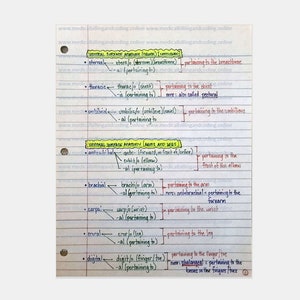 www.medicalbillingandcoding.online
VENTRAL SURFACE ANATOMY (TRUNK)
• sternal → stern/o (sternum) (breastbone) pertaining to the breastbone
-al (pertaining to)
• thoracic → thorac/o (chest) pertaining to the chest
-ic (pertaining to) NOTE: also called pectoral
• umbilical → umbilic/o (umbilicus) (navel) pertaining to the umbilicus
-al (pertaining to)
VENTRAL SURFACE ANATOMY (ARMS AND LEGS)
• antecubital ante- (forward, in front of, before) pertaining to the
cubit/o (elbow) front of the elbow
-al (pertaining to)
• brachial → brachi/o (arm) pertaining to the arm
-al (pertaining to) NOTE: antebrachial = pertaining to the
forearm
• carpal → carp/o (wrist) pertaining to the wrist
-al (pertaining to)
• crural → crur/o (leg) pertaining to the leg
-al (pertaining to)
• digital → digit/o (finger/toe) pertaining to the finger/toe
-al (pertaining to) NOTE: phalanges = pertaining to the
bones in the fingers/toes